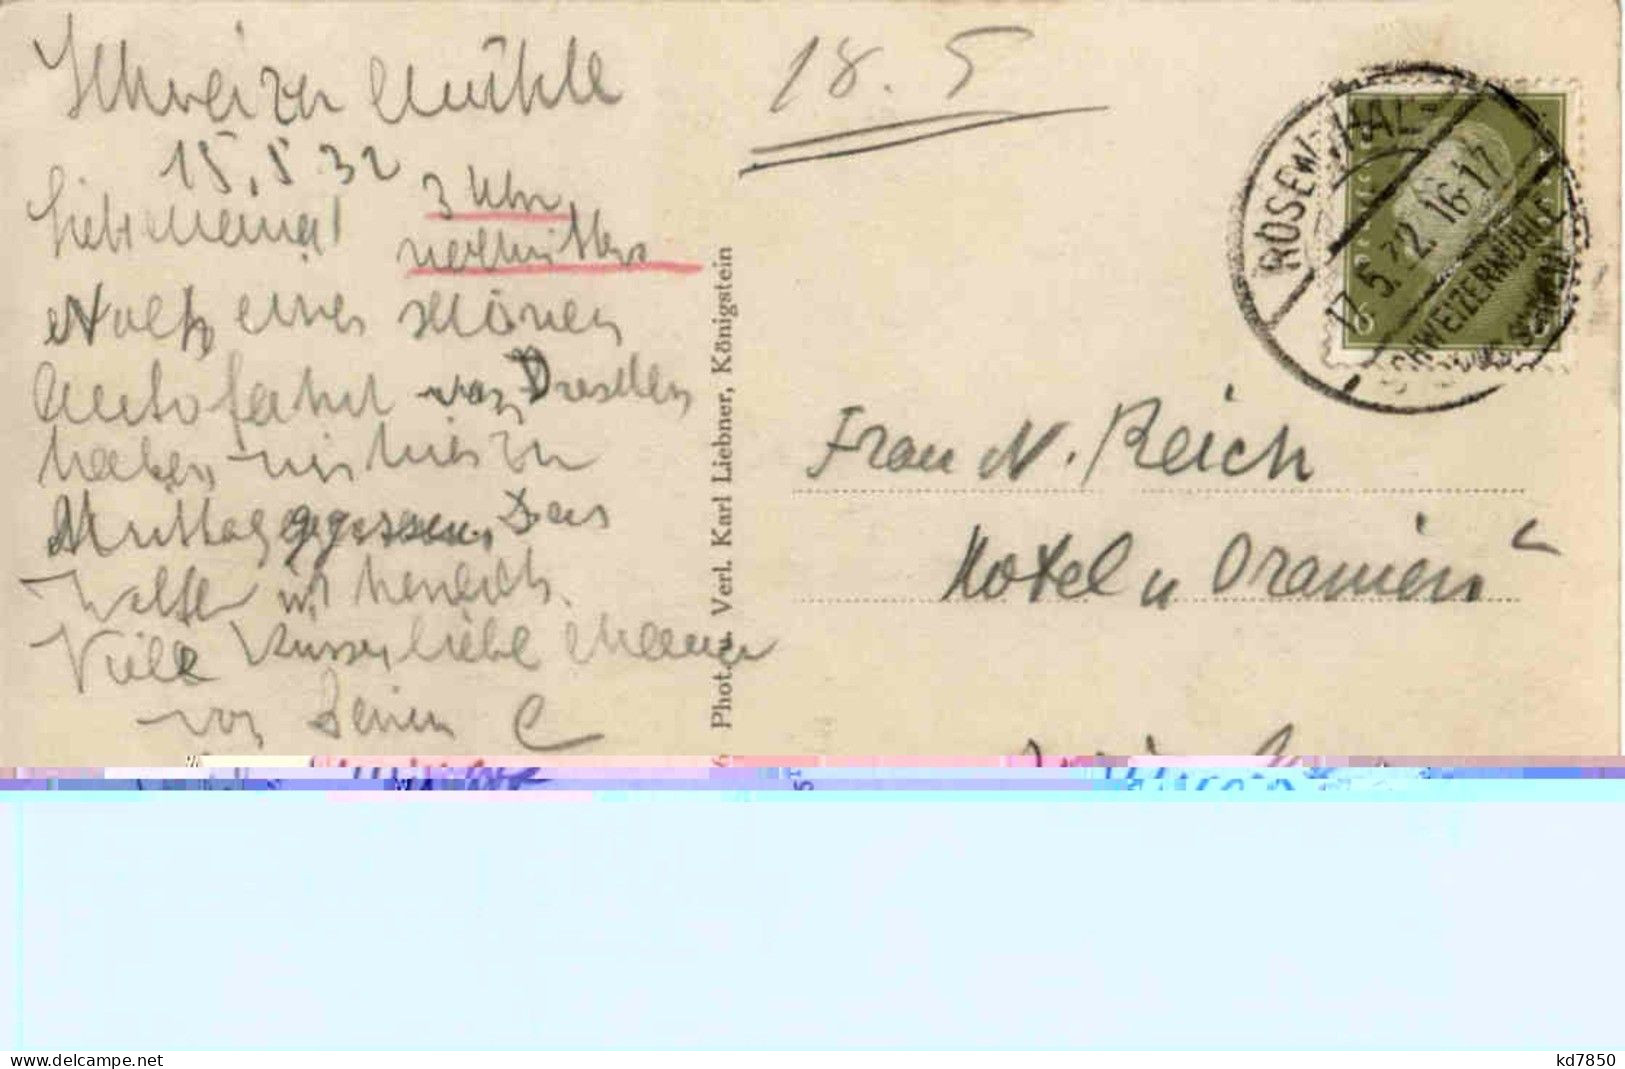 Schweizer Mühle
15.5.32
3 Uhr
nachmittags
Liebe Mama!
Nach einer schönen
Autofahrt von Dresden
haben wir hier zu
Mittag gegessen. Das
Wetter ist herrlich.
Viele Küsse, liebe Mama
von Deinem
18. 5
Phot. u. Verl. Karl Liebner, Königstein
ROSENTHAL-
17.5.32.16-17
SCHWEIZERMÜHLE
Frau N. Reich
Hotel „Oranien“
delcampe.net
kd7850